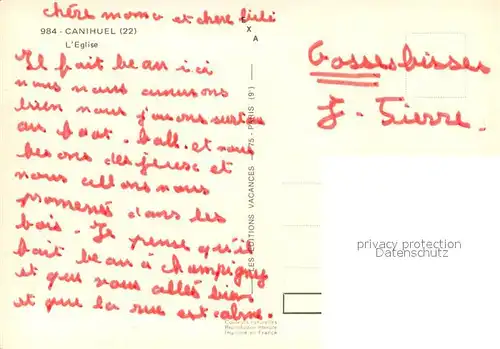 chère moma et chère lili
984 - CANIHUEL (22)
L'Eglise
E
X
A
Il fait beau ici
nous nous amusons
bien nous jouons surtout
au boot-ball et nous
et
nous allons nous
promener dans les
bois. Je pense qu'il
fait beau à champigny
et que vous allés bien
et que la rue est calme.
LES EDITIONS VACANCES - 775 - PARIS (9e)
Gosses bisses
J-Pierre.
privacy protection
Datenschutz
Couleurs naturelles
Reproduction Interdite
Imprimé en France